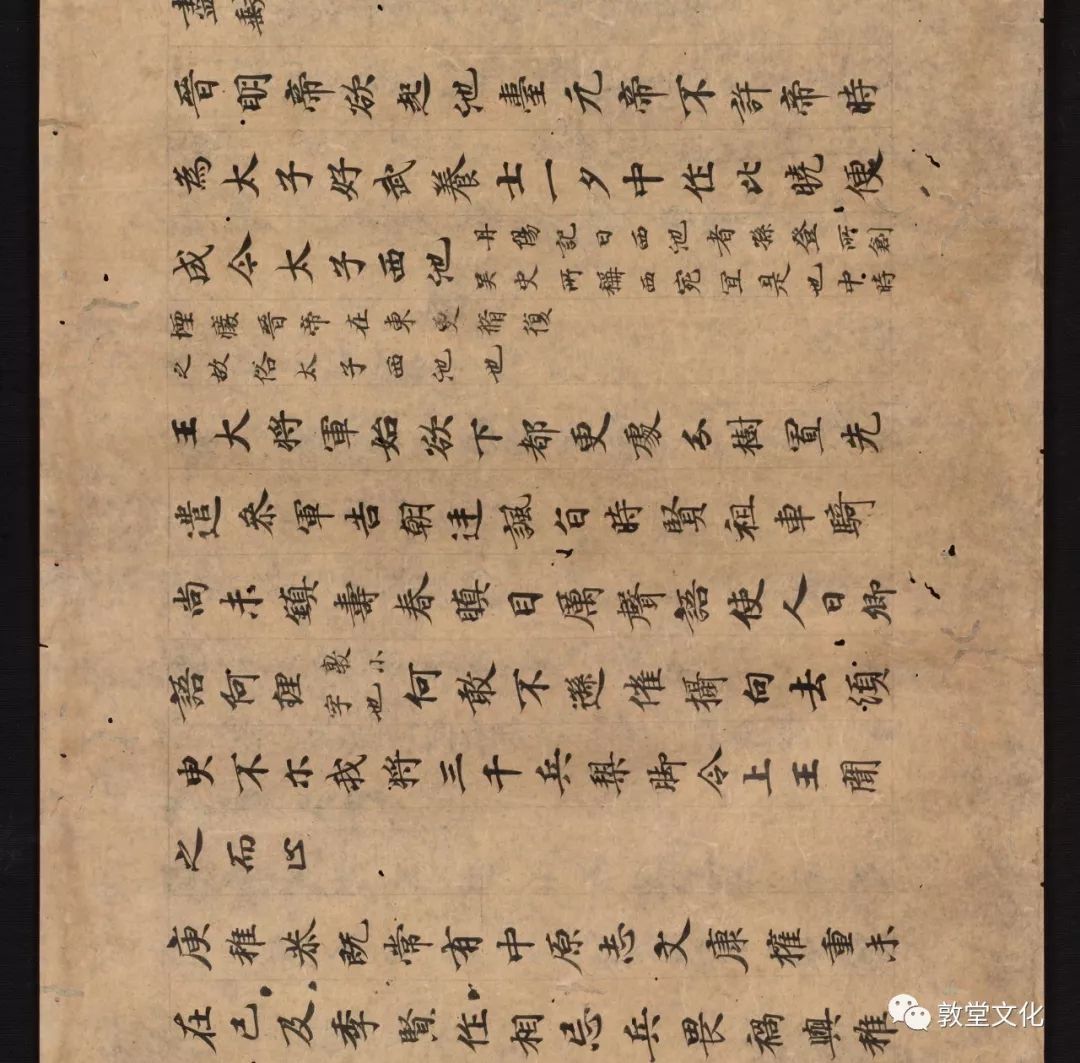 盡
晉明帝欲起池臺元帝不許帝時
為太子好武養士一夕中作比曉便
成今太子西池
丹陽記曰西池者孫登所創
吳史所稱西宛冝是也中時
堙癈晉帝在東更脩復
之故俗太子西池也
王大將軍始欲下都更處分樹置先
遣參軍告朝廷諷旨時賢祖車騎
尚未鎮壽春瞋目厲聲語使人曰卿
語阿狸敦小字也何敢不遜催攝向去須
臾不尓我將三千兵槊脚令上王聞
之而止
庾稚恭既常有中原志文康權重未
在己及季賢作相忌兵畏禍與稚
敦堂文化